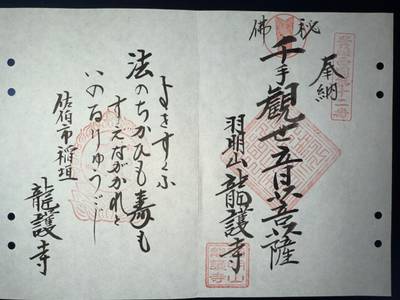 奉納
秘佛
千手観世音菩薩
羽明山龍護寺
よきすくふ
法のちかひも壽も
すえながかれと
いのるりゅうごじ
佐伯市稲垣
龍護寺